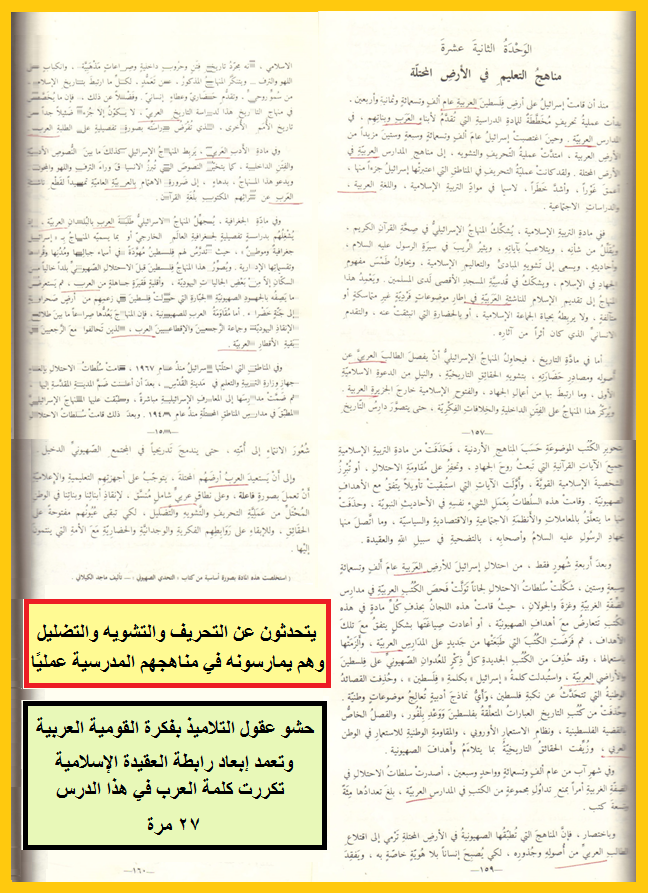 الوَحْدَةُ الثانيةَ عشرةَ
مناهجُ التعليمِ في الأرضِ المحتلّة
منذ أن قامتْ إسرائيلُ على أرضِ فِلسطينَ العربيةِ عامَ ألفٍ وتسعمائةٍ وثمانيةٍ وأربعين ،
بدأت عمليةُ تحريفٍ مخطّطة للمادةِ الدراسيةِ التي تُقدَّمُ لأبناءِ العَرَبِ وبناتِهم , في
المدارسِ العربيّة . وحينَ اغتصبتْ إسرائيلُ عامَ ألفٍ وتسعمائةٍ وسبعةٍ وستينَ مزيداً من
الأرضِ العربية ، امتدّتْ عمليةُ التحريفِ والتشويه ، إلى مناهجِ المدارسِ العربيّةِ في
الأرضِ المحتلة . ولقد كانتْ عمليةُ التحريفِ في المناطقِ التي اعتبرتها إسرائيلُ جزءاً منها ،
أعمقَ غوراً ، وأشدَّ خطراً ، لاسيما في موادِّ التربيةِ الإسلامية ، واللغةِ العربية ،
والدراساتِ الاجتماعية .
ففي مادةِ التربيةِ الإسلامية ، يُشككُ المنهاجُ الإسرائيليُّ في صحّةِ القرآنِ الكريم ،
ويُقلّلُ من شأنِه ، ويتلاعبُ بآياتِه ، ويثيرُ الرَّيبَ في سيرةِ الرسولِ عليه السلام ،
وأحاديثِه ، ويسعى إلى تشويهِ المبادئِ والتعاليمِ الإسلامية ، ويحاولُ طمْسَ مفهومِ
الجهادِ في الإسلام ، ويشككُ في قدسيّةِ المسجدِ الأقصى لدى المسلمين . ويَعْمِدُ هذا
المنهاجُ إلى تقديمِ الإسلامِ للناشئةِ العَرَبيّةِ في إطارِ موضوعاتٍ فرديّةٍ غيرِ متماسكةٍ أو
متآلفة ، ولا يربطُه بحياةِ الجماعةِ الإسلامية ، أو بالحضارةِ التي انبثقت عنه ، والتقدمِ
الانسانيِّ الذي كان أثراً من آثارِه .
أما في مادّةِ التاريخ ، فيحاولُ المنهاجُ الإسرائيليُّ أنْ يفصلَ الطالبَ العربيَّ عن
أصولِه ومصادرِ حَضَارتِه ، بتشويهِ الحقائقِ التاريخيّة ، والنيلِ من الدعوةِ الاسلاميّةِ
الأولى ، وما ارتبطَ بها من أعمالِ الجهاد ، والفتوحِ الإسلاميةِ خارجَ الجزيرةِ العربية .
ويُركّزُ هذا المنهاجُ على الفِتَنِ الداخليةِ والخلافاتِ الفِكْريّة ، حتى يتصوّرَ دارسُ التاريخِ
—١٥٧—
الاسلامي ، أنه مجرّدُ تاريخِ فِتَنٍ وحروبٍ داخليةٍ وصراعاتٍ مَذْهبيّة ، وانكبابٍ على
اللهوِ والترف . ويتنكّرُ المنهاجُ المذكورُ ، عن تَعَمُّدٍ ، لكلِّ ما ارتبطَ بتاريخِ الإسلامِ ،
من سُمُوٍّ روحيّ ، وتقدمٍ حَضاريٍّ وعطاءٍ إنسانيّ . وفضلاً عن ذلك ، فإن ما يُخصَّصُ
في منهاجِ التاريخِ هذا لدراسةِ التاريخِ العربيّ ، لا يكونُ إلا جزءاً ضئيلاً جداً من
تاريخِ الأممِ الأخرى ، الذي تُفْرَضُ دراستُه بصورةٍ تفصيليةٍ على الطلبةِ العرب .
وفي مادةِ الأدبِ العَربيّ ، يربطُ المنهاجُ الإسرائيليُّ كذلكَ ما بينَ النصوصِ الأدبيةِ
والفِتَنِ الداخلية ، كما يتخيّرُ النصوصَ التي تُبرزُ الانسياقَ وراءَ الترفِ واللهوِ والمجون .
ويدعو هذا المنهاجُ ، بدهاءٍ ، إلى ضرورةِ الاهتمامِ بالعربيةِ العاميةِ تمهيداً لقطعِ ناشئةِ
العَرَبِ عن تراثِهم المكتوبِ بلغةِ القرآنِ .
وفي مادةِ الجغرافية ، يُجهّلُ المنهاجُ الإسرائيليُّ طلبتَنا العربَ بالبُلدانِ العربيّة ، إذ
يَشْغَلُهم بدراسةٍ تفصيليةٍ لجغرافيةِ العالَمِ الخارجيّ أو بما يسميه المنهاجُ بـ « إسرائيل
جغرافيةً وموطِناً » ، حيثُ تُدرَّسُ لهم فِلسطينُ مُهَوَّدةً في أسماءِ جبالِها ومُدُنِها وقُراها
وتقسيماتِها الإدارية . ويُصَوّرُ هذا المنهاجُ فِلسطينَ قبلَ الاحتلالِ الصِّهيونيِّ بلداً خالياً من
السكّانِ إلا من بعضِ الجالياتِ اليهوديّة ، وأقليةٍ فقيرةٍ جاهلةٍ من العرب ، ثم يستعرضُ
ما يَصِفُه بالجهودِ الصِهيونيّةِ الجبّارةِ التي حوّلتْ فِلسطينَ في زعمِهم من أرضٍ صحراويةٍ
إلى جنّةٍ خَضْراء . أما مُقاومةُ العربِ للصِّهيونية ، فإن المنهاجَ يُعدُّها صراعاً ما بينَ طلائعِ
الإنقاذِ اليهوديّةِ وجماعةِ الرَّجعيينَ والإقطاعيينَ العرب ، الذين تحالفوا معَ الرَّجعيينَ من
بقيةِ الأقطارِ العربيّة .
وفي المناطقِ التي احتلّتها إسرائيلُ منذ عامِ ١٩٦٧ ، قامتْ سُلطاتُ الاحتلالِ بإلغاءِ
جهازِ وزارةِ التربيةِ والتعليمِ في مدينةِ القُدْسِ ، بعدَ أن أعلنتْ ضمَّ المدينةِ المقدَّسةِ إليها .
ثم ضَمَّتْ مدارسَها إلى المعارفِ الإسرائيليةِ مباشرةً ، وطبّقتْ عليها المنهاجَ الإسرائيليَّ
المطبّقَ في مدارسِ المناطقِ المحتلّةِ منذ عام ١٩٤٨ . وبعدَ ذلك قامتْ سُلطاتُ الاحتلالِ
—١٥٨—
بتحويرِ الكُتُبِ الموضوعةِ حَسَبَ المناهجِ الأردنية ، فحَذَفَتْ من مادةِ التربيةِ الإسلاميةِ
جميعَ الآياتِ القرآنيةِ التي تَبعثُ روحَ الجهاد ، وتحفِزُ على مُقاومةِ الاحتلال ، أو تُبرزُ
الشخصيةَ الإسلاميةَ القويّة ، وأوّلتِ الآياتِ التي استبقيتْ تأويلاً يتّفقُ معَ الأهدافِ
الصهيونيّة . وقامتْ هذه السلطاتُ بعملِ الشيءِ نفسِهِ في الأحاديثِ النبويّة ، وحذفَتْ
منها ما يتعلّقُ بالمعاملاتِ والأنظمةِ الاجتماعيةِ والاقتصاديةِ والسياسيّة ، وما اتّصلَ منها
بجهادِ الرسولِ عليه السلامُ وأصحابِه ، بالتضحيةِ في سبيلِ اللهِ والعقيدة .
وبعدَ أربعةِ شهورٍ فقط ، من احتلالِ إسرائيلَ للأرضِ العَرَبيةِ عامَ ألفٍ وتسعمائةٍ
وسبعةٍ وستين ، شكّلتْ سُلطاتُ الاحتلالِ لجاناً تولّتْ فحصَ الكُتبِ العربيّةِ في مدارسِ
الضفّةِ الغربيّةِ وغزةَ والجولان ، حيثُ قامتْ هذه اللجانُ بحذفِ كُلِّ مادةٍ في هذه
الكُتبِ تتعارضُ معَ أهدافِ الصهيونيّة ، أو أعادتْ صياغتَها بشكلٍ يتفقُ معَ تلكَ
الأهداف ، ثم فَرَضَتِ الكتبَ التي طَبَعَتْها من جديدٍ على المدارسِ العربيّة ، وألزمَتْها
باستعمالها . وقد حُذِفَ من الكُتُبِ الجديدةِ كلُّ ذكرٍ للعُدوانِ الصِّهيونيِّ على فِلسطينَ
والأراضي العربيّة ، واستُبدلتْ كلمةُ « إسرائيل » بكلمةِ « فِلسطين » ، وحُذِفتِ القصائدُ
الوطنيةُ التي تتحدّثُ عن نكبةِ فِلسطين ، وأيُّ نماذجَ أدبيةٍ تُعالجُ موضوعاتٍ وطنيّة .
وحُذِفتْ من كُتُبِ التاريخِ العباراتُ المتعلّقةُ بفلسطينَ وَوَعْدِ بِلْفُور ، والفصلُ الخاصُّ
بالقضيةِ الفلسطينية ، ونظامِ الاستعمارِ الأوروبي ، والمقاومةِ الوطنيةِ للاستعمارِ في الوطنِ
العربي ، وزُيِّفتِ الحقائقُ التاريخيّةُ بما يتلاءمُ وأهدافَ الصهيونية .
وفي شهرِ آب من عامِ ألفٍ وتسعمائةٍ وواحدٍ وسبعين ، أصدرتْ سلطاتُ الاحتلالِ في
الضفّةِ العربيةِ أمراً بمنعِ تداوُلِ مجموعةٍ من الكتبِ في المدارسِ العربيّة ، بلغَ تعدادُها مئةً
وتسعةَ كتب .
وباختصار ، فإنَّ المناهجَ التي تُطبّقُها الصهيونيةُ في الأرضِ المحتلةِ تَرْمي إلى اقتلاعِ
الطالبِ العربيِّ من أصولِه وجُذورِه ، لكي يُصبحَ إنساناً بلا هُويّةٍ خاصّةٍ به ، ويَفقدَ
—١٥٩—
شُعورَ الانتماءِ إلى أُمّتِه ، حتى يندمجَ تدريجياً في المجتمعِ الصِّهيونيِّ الدخيل .
وإلى أنْ يَستعيدَ العربُ أرضَهم المحتلة ، يتوجّبُ على أجهزتِهم التعليميةِ والإعلاميةِ
أنْ تَعملَ بصورةٍ فاعلة ، وعلى نطاقٍ عربيٍّ شاملٍ مُنسّق ، لإنقاذِ أبنائِنا وبناتِنا في الوطنِ
المُحْتلِّ من عَمَليّةِ التحريفِ والتشويهِ والتضليل ، لكي تبقى عُيونُهم مفتوحةً على
الحقائق ، وللإبقاءِ على رَوَابطِهم الفِكريةِ والوِجدانيّةِ والحَضاريّةِ معَ الأمّةِ التي ينتمون
إليها .
( استخلصت هذه المادة بصورة أساسية من كتاب « التحدي الصهيوني » – تأليف ماجد الكيلاني ) .
—١٦٠—
يتحدثون عن التحريف والتشويه والتضليل
وهم يمارسونه في مناهجهم المدرسية عمليًا
حشو عقول التلاميذ بفكرة القومية العربية
وتعمد إبعاد رابطة العقيدة الإسلامية
تكررت كلمة العرب في هذا الدرس
٢٧ مرة